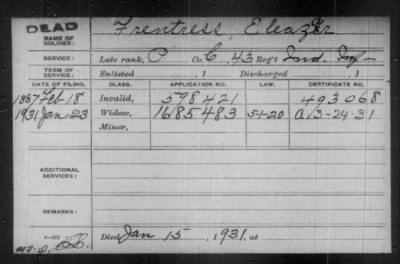 DEAD
NAME OF SOLDIER: Frentress, Eleazer
SERVICE: Late rank, P Co. C, 43 Reg't Ind. Inf
TERM OF SERVICE: Enlisted , 1 Discharged , 1
DATE OF FILING. CLASS. APPLICATION NO. LAW. CERTIFICATE NO.
1887 Feb 18 Invalid, 598421 493068
1931 Jan 23 Widow, 1685483 5-1-20 A. 3-24-31
Minor,
ADDITIONAL SERVICES:
REMARKS:
Died Jan 15, 1931, at